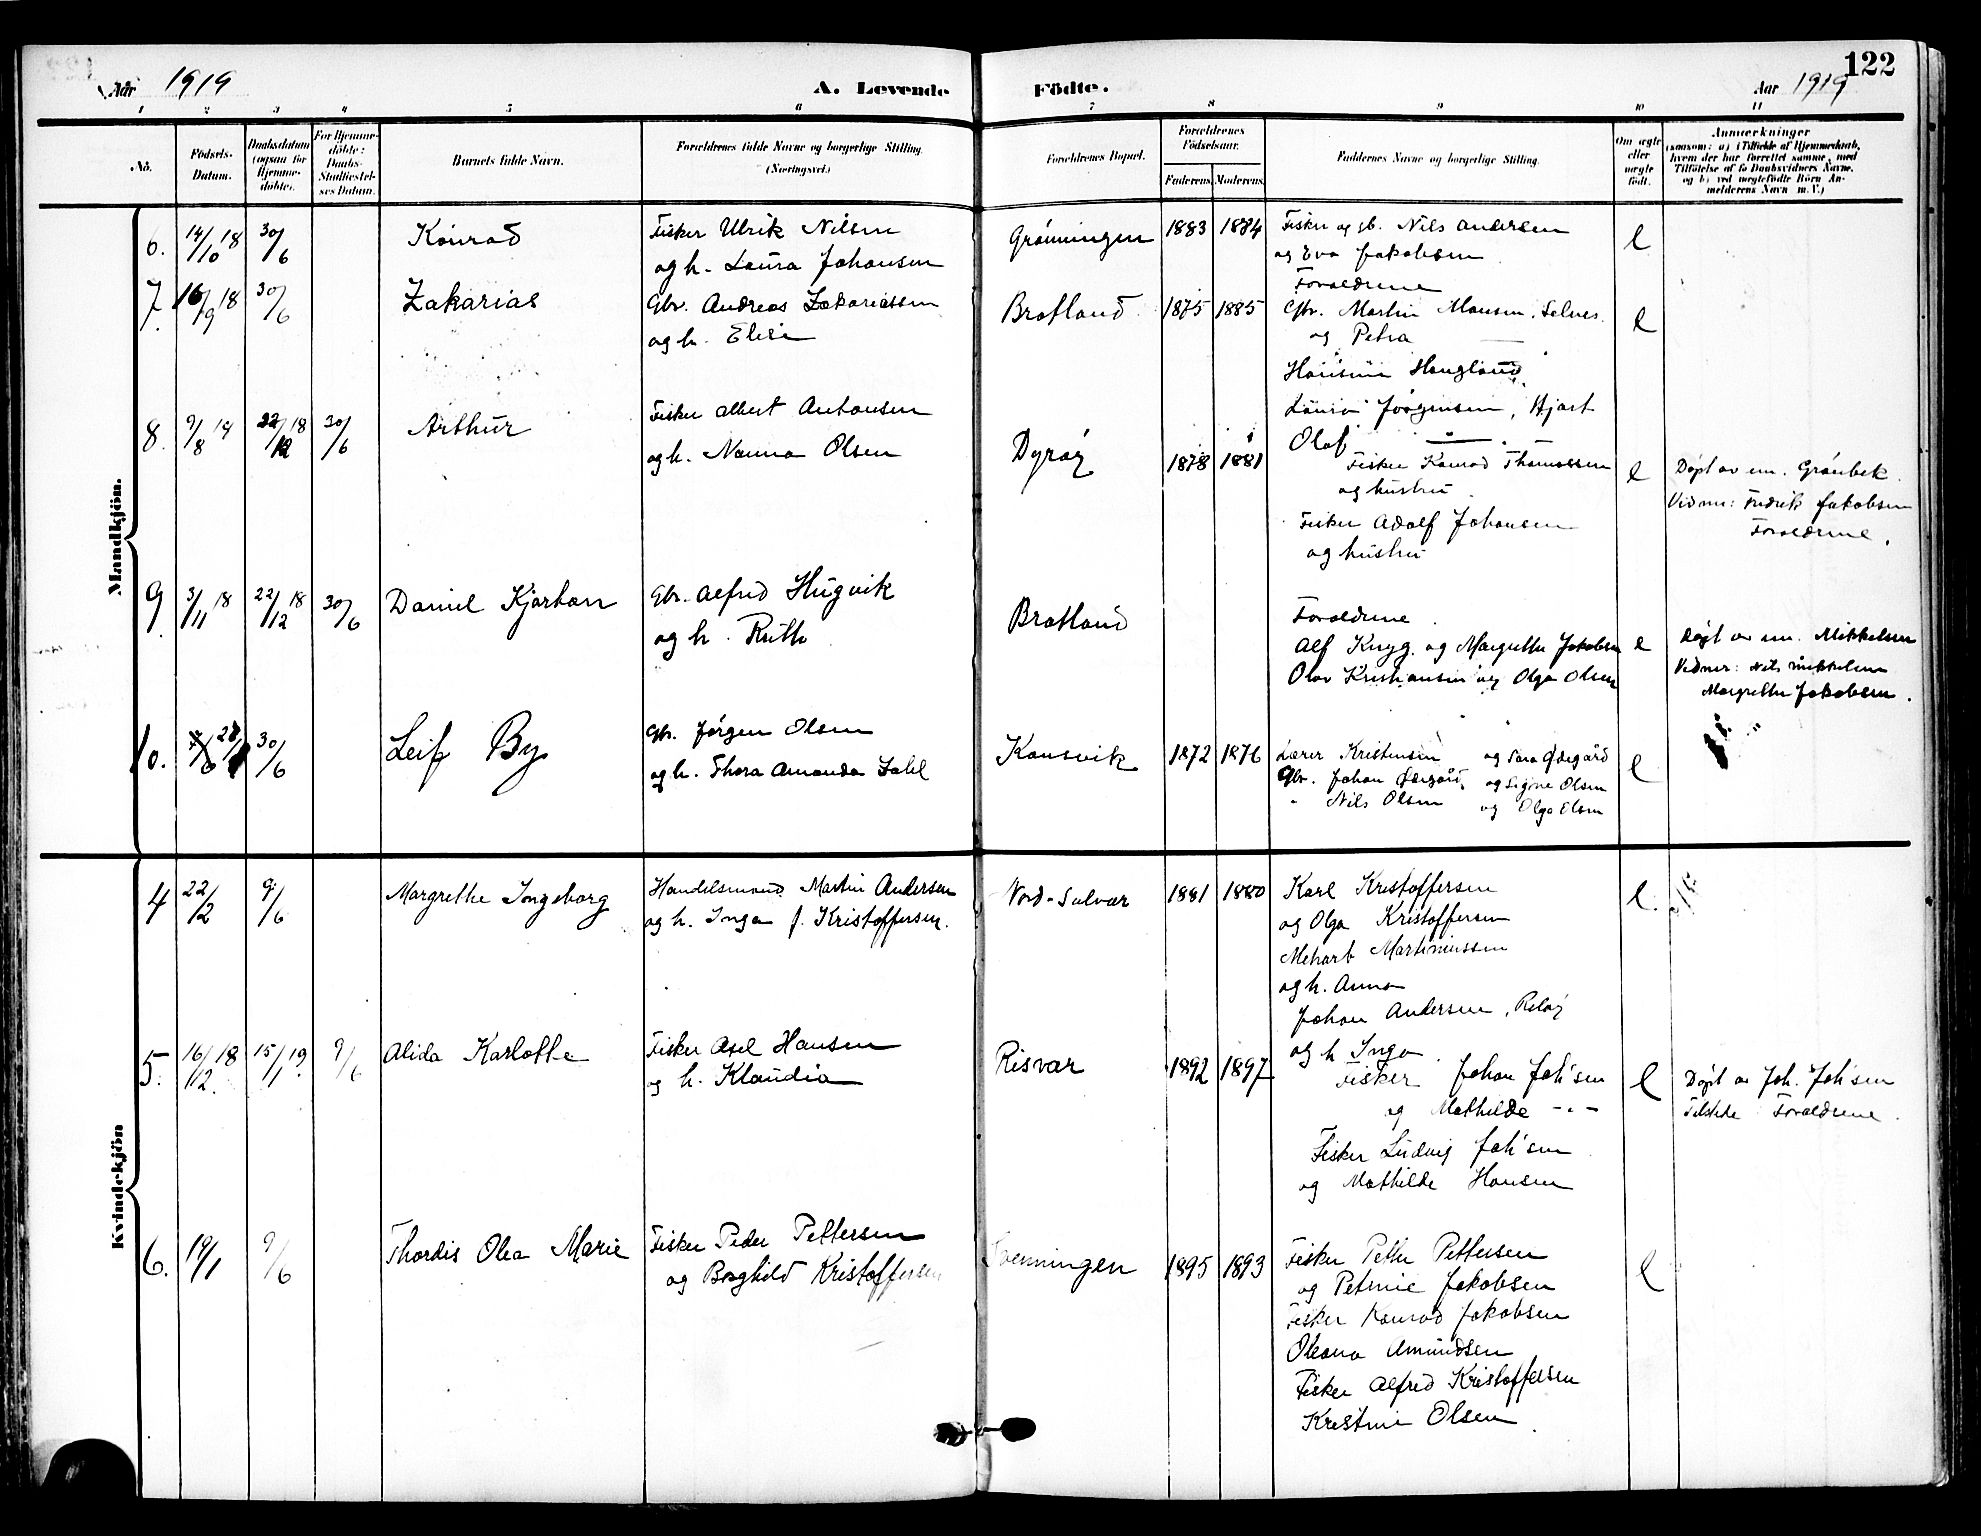 Aar 1919 A. Levende Födte. Aar 1919 122
1 2 3 4 5 6 7 8 9 10 11
No. Födsels-Datum. Daabsdatum (ogsaa for Hjemme-döbte). For Hjemme-döbte: Daabs-Stadfæstelses Datum. Barnets fulde Navn. Forældrenes fulde Navne og borgerlige Stilling. (Næringsvei.) Forældrenes Bopæl. Forældrenes Födselsaar. Faderens. Moderens. Faddernes Navne og borgerlige Stilling. Om ægte eller uægte födt. Anmærkninger (saasom: a) i Tilfælde af Hjemmedaab, hvem der har forrettet samme, med Tilföielse af to Daabsvidners Navne, og b) ved uægtefödte Börn Anmelderens Navn m. V.)
Mandkjön.
6. 14/10 18 30/6 Konrad Fisker Ulrik Nilsen Grønningen 1883 1884 Fisker og gb. Nils Andersen e
og h. Laura Johansen og Eva Jakobsen
Forældrene
7. 16/9 18 30/6 Zakarias Gbr. Andreas Zakariassen Bratland 1875 1885 Gbr. Martin Monsen, Selnes. e
og h. Elise og Petra —
Hansine Haugland
Laura Jörgensen, Hjart
8. 9/8 19 22/12 18 30/6 Arthur Fisker Albert Antonsen Dyrøy 1878 1881 Olaf — " —
og h. Nanna Olsen Fisker Konrad Thomassen e Døpt av em. Grönbek.
og hustru Vidner: Fredrik Jakobsen
Fisker Adolf Johansen Forældrene.
og hustru
9. 3/11 18 22/12 18 30/6 Daniel Kjartan Gbr. Alfred Hugvik Bratland Forældrene.
og h. Ruth Alf Kryg. og Margrethe Jakobsen e Døpt av em. Mikkelsen
Olav Kristiansen og Olga Olsen Vidner: Nils Mikkelsen
Margrethe Jakobsen.
10. 30/6 Leif By Gbr. Jørgen Olsen Konsvik 1872 1876 Lærer Kristensen og Sara Ødegård e
og h. Thora Amanda Zahl Gbr. Johan Ødegård, og Signe Olsen
" Nils Olsen og Olga Olsen
Kvindekjön
4 22/2 9/6 Margrethe Ingeborg Handelsmand Martin Andersen Nord-Solvær 1881 1880 Karl Kristoffersen e.
og h. Inga f. Kristoffersen. og Olga Kristoffersen
Mehart Martinussen
og h. Anna
Johan Andersen, Reløy
og h Inga.
5. 16/12 18 15/1 19 9/6 Alida Karlotte Fisker Axel Hansen Risvær 1892 1897 Fisker Johan Joh'sen e Døpt av Joh. Joh'sen
og h. Klaudia og Mathilde -"- Tilstede Forældrene.
Fisker Ludvig Joh'sen
og Mathilde Hansen
6. 19/1 9/6 Thordis Olea Marie Fisker Peder Pettersen Svenningen 1895 1893 Fisker Petter Pettersen e
og Borghild Kristoffersen og Petrine Jakobsen
Fisker Konrad Jakobsen
Oleana Amundsen
Fisker Alfred Kristoffersen
Kristine Olsen.